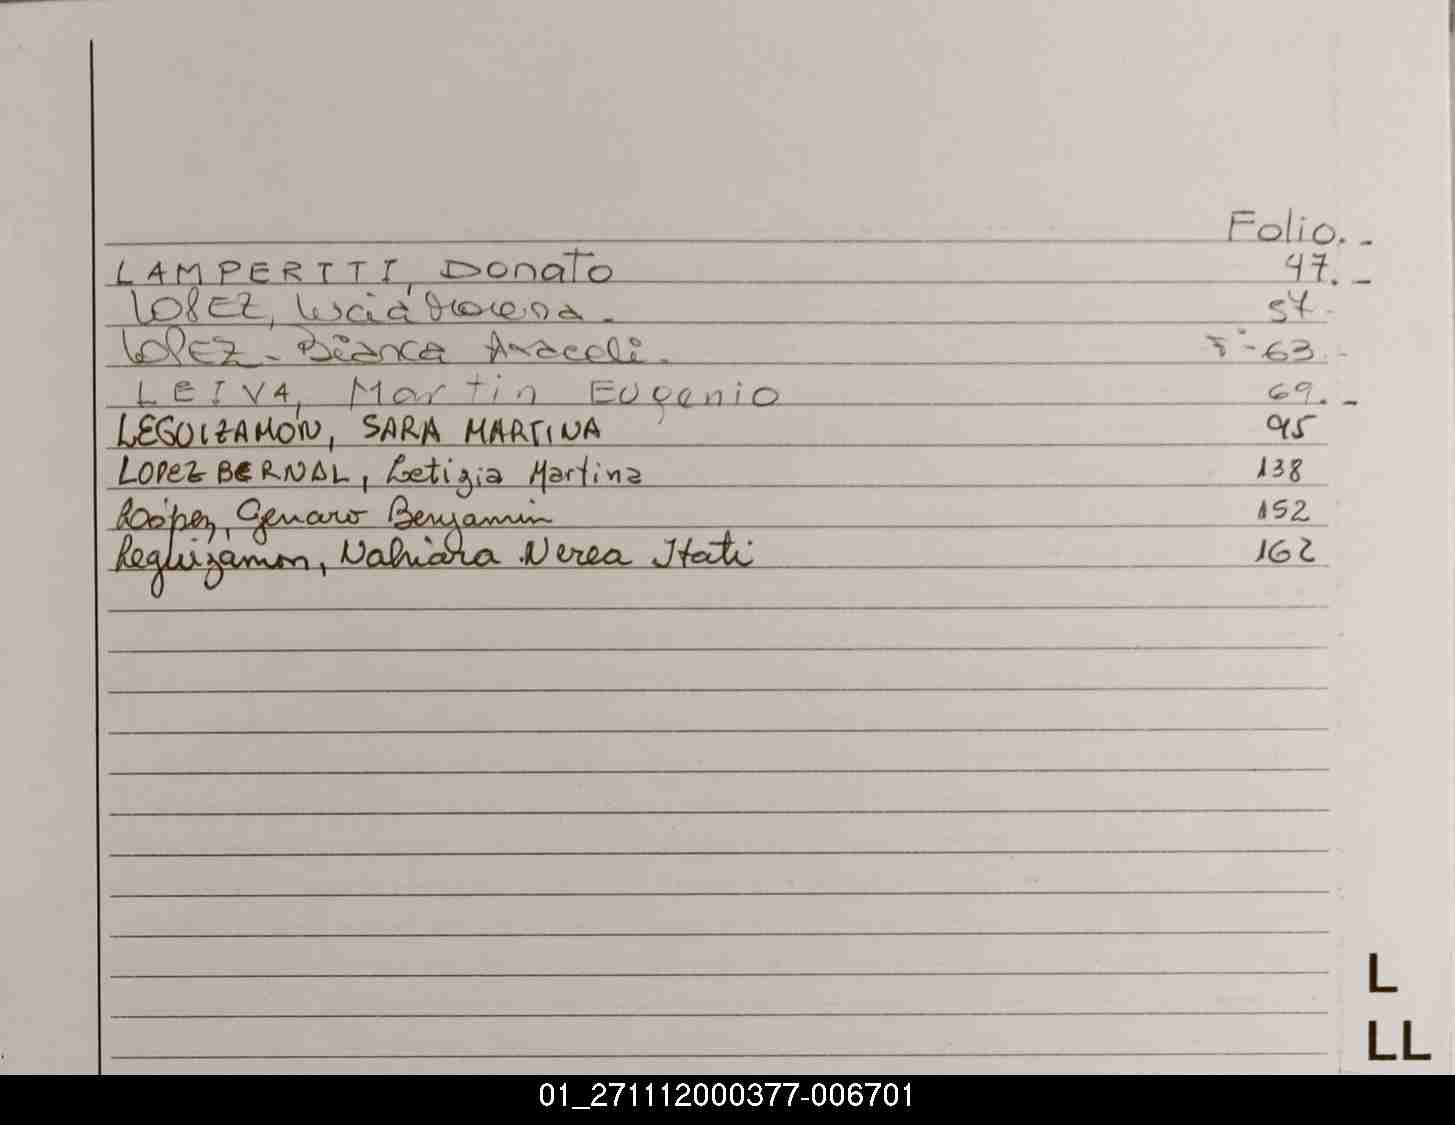 Folio. -
LAMPERTTI, Donato 47. -
LOPEZ, Lucia Morena. - 57.
LOPEZ - Bianca Araceli. F - 63. -
LEIVA, Martin Eugenio 69. -
LEGUIZAMÓN, SARA MARTINA 95
LOPEZ BERNAL, Letizia Martina 138
López, Genaro Benjamin 152
Leguizamon, Nahiara Nerea Itati 162
L
LL
01_271112000377-006701